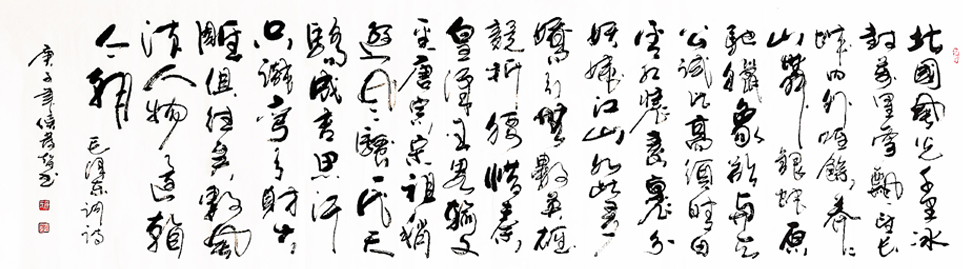 北國風光千里冰
封萬里雪飄望長
城内外唯餘莽々
山舞銀蛇原
馳蠟象欲與天
公試比高須晴日
看紅裝素裹分
妖嬈江山如此多
嬌引無數英雄
競折腰惜秦
皇漢武略輸文
采唐宗宋祖稍
遜風騷一代天
驕成吉思汗
只識彎弓射大
雕俱往矣數風
流人物還看
今朝
毛澤東詞詩
庚子年